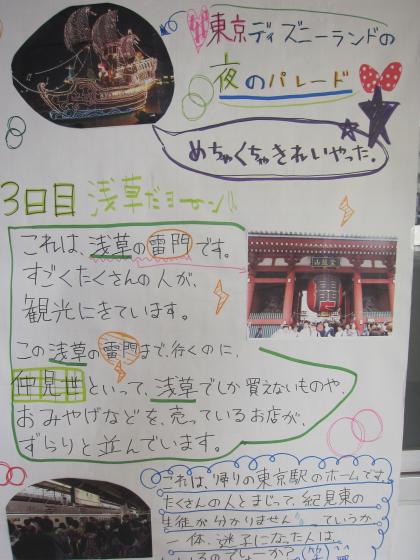 東京ディズニーランドの
夜のパレード
めちゃくちゃきれいやった。
3日目 浅草だョーン!!
これは、浅草の雷門です。
すごくたくさんの人が、
観光にきています。
この浅草の雷門まで、行くのに、
仲見世といって、浅草でしか買えないものや、
おみやげなどを、売っているお店が、
ずらりと並んでいます。
これは、帰りの東京駅のホームです。
たくさんの人とまじって、紀見東の
生徒が分かりません。ていうか
一体、迷子になった人は
いるのでしょーか?